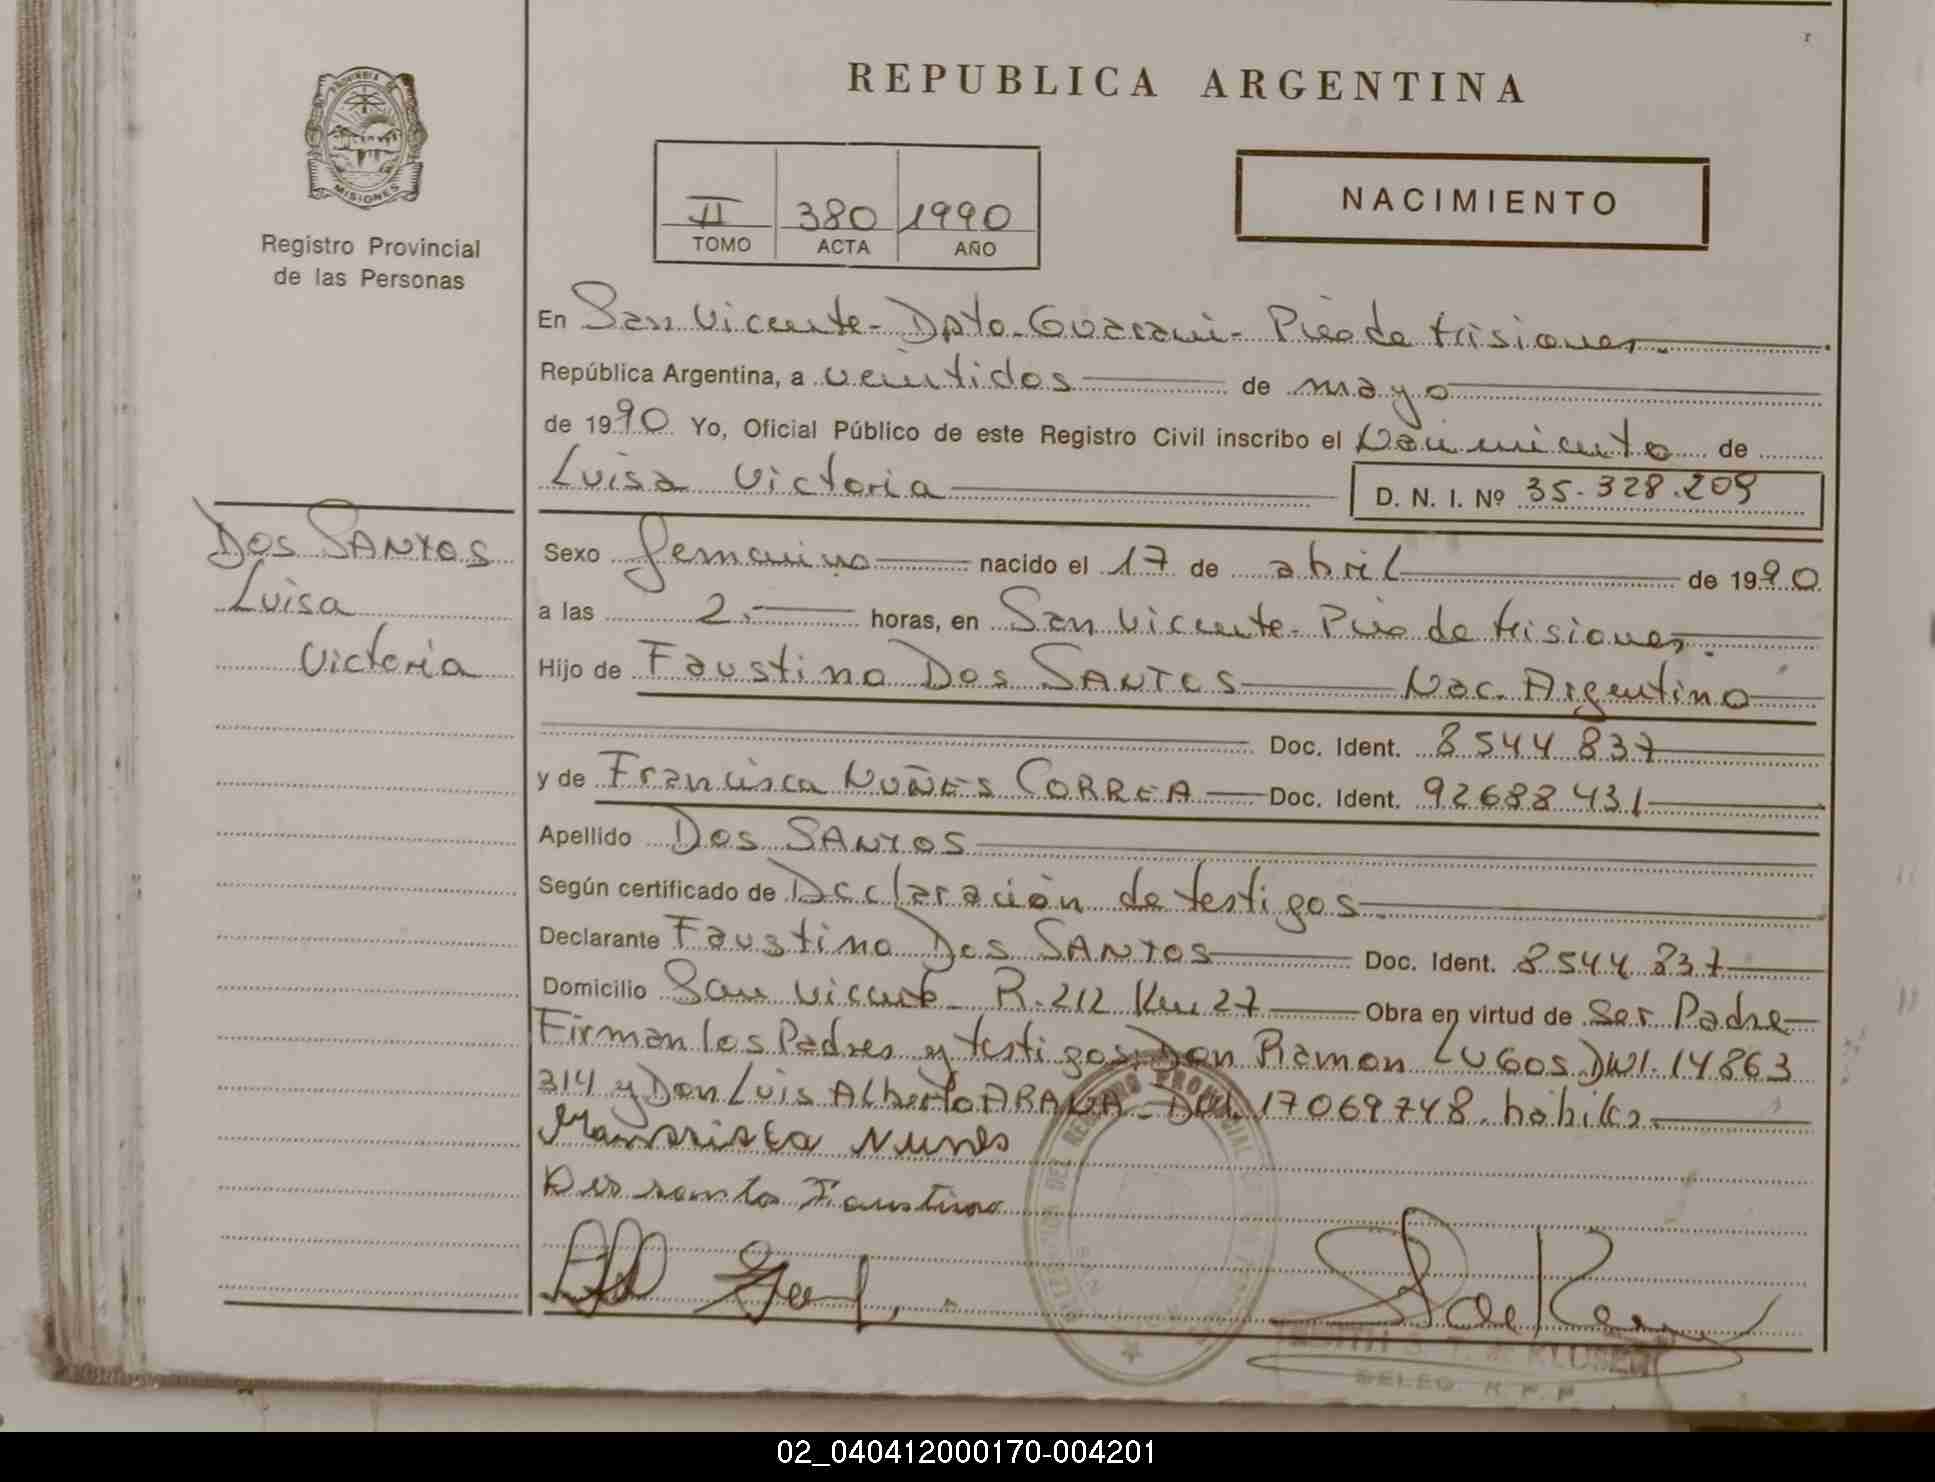 REPUBLICA ARGENTINA
PROVINCIA DE
MISIONES
Registro Provincial
de las Personas
II 380 1990
TOMO ACTA AÑO
NACIMIENTO
En San Vicente - Dpto. Guarani - Pcia de Misiones.
República Argentina, a veintidos de mayo
de 1990 Yo, Oficial Público de este Registro Civil inscribo el Nacimiento de
Luisa Victoria D. N. I. Nº 35.328.209
Dos SANTOS
Luisa
Victoria
Sexo femenino nacido el 17 de abril de 1990
a las 2.- horas, en San Vicente - Pcia de Misiones.
Hijo de Faustino Dos SANTOS Nac. Argentino
Doc. Ident. 8544837
y de Francisca NUÑES CORREA Doc. Ident. 92688431
Apellido Dos SANTOS
Según certificado de Declaración de testigos.
Declarante Faustino Dos SANTOS Doc. Ident. 8544837
Domicilio San Vicente - R. 212 Km 27 Obra en virtud de Ser Padre
Firman los Padres y testigos: Don Ramon LUGOS DNI. 14863
314 y Don Luis Alberto ARANA - DNI. 17069748. hábiles.
Nunes
Dos santos Faustino
DEL REGISTRO PROVINCIAL
KLUSEN
DELEG. R. P. P.
02_040412000170-004201